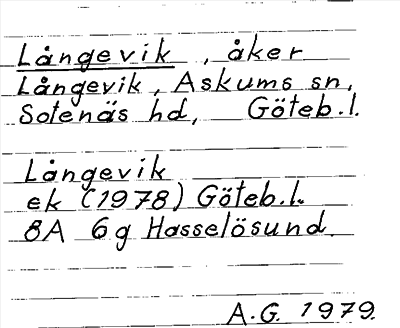 Långevik , åker
Långevik, Askums sn,
Sotenäs hd, Göteb.l.
Långevik
ek (1978) Göteb.l.
8A 6g Hasselösund.
A.G. 1979.